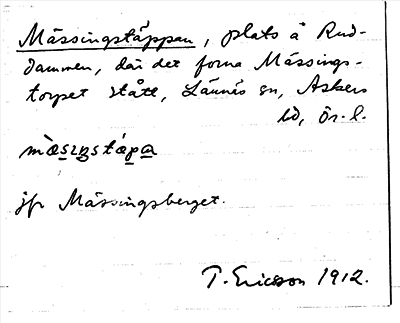 Mässingstäppan, plats å Rud-
dammen, där det forna Mässings-
torpet stått, Lännäs sn, Askers
hd, Ör. l.
mæ̀sıŋstápa
jfr Mässingsberget.
T. Ericsson 1912.